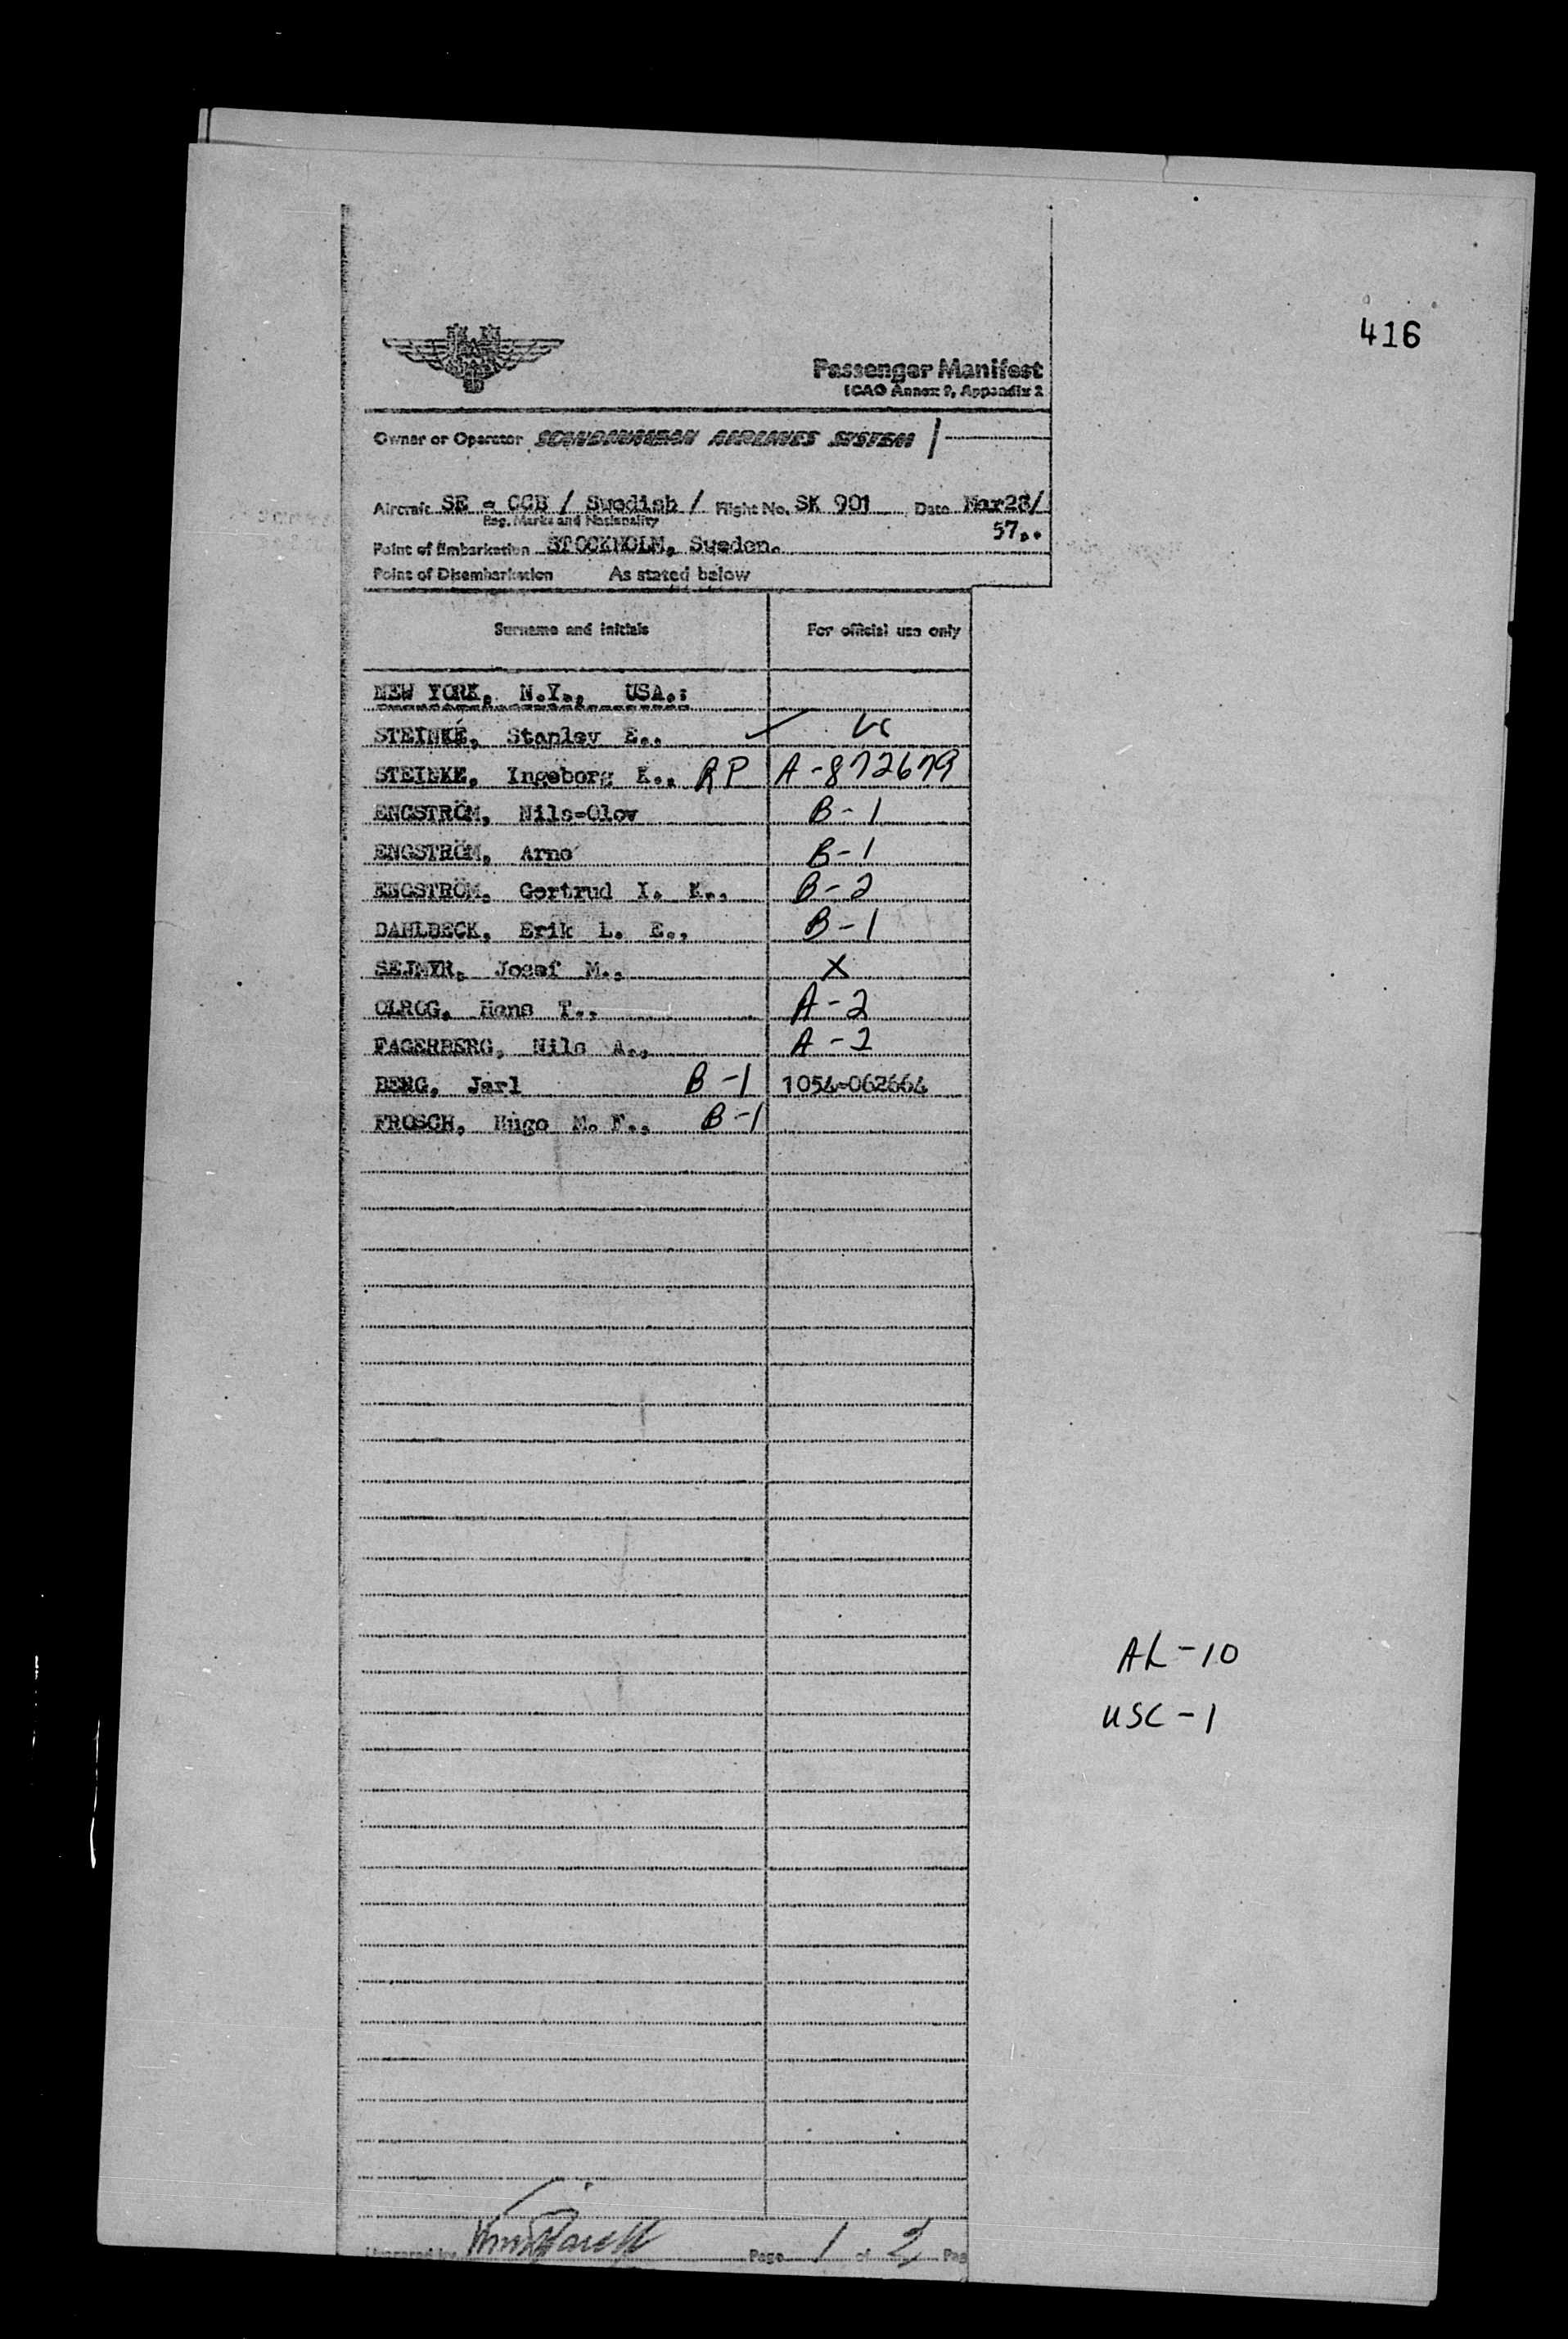 416
Passenger Manifest
ICAO Annex 9, Appendix 2
Owner or Operator SCANDINAVIAN AIRLINES SYSTEM
Aircraft SE - CCB / Swedish / Flight No. SK 901 Date Mar28/
Reg. Marks and Nationality
57..
Point of Embarkation STOCKHOLM, Sweden.
Point of Disembarkation As stated below
Surname and initials For official use only
NEW YORK, N.Y., USA.:
STEINKE, Stanley E..
STEINKE, Ingeborg K., RP A-872679
ENGSTRÖM, Nils-Olov B-1
ENGSTRÖM, Arne B-1
ENGSTRÖM, Gertrud I. K., B-2
DAHLBECK, Erik L. E., B-1
SEJMYR, Josef M., X
OLROG, Hans T., A-2
FAGERBERG, Nils A., A-2
BERG, Jarl B-1 1054-062664
FROSCH, Hugo M. F., B-1
AL-10
USC-1
Prepared by Page 1 of 2 Pag